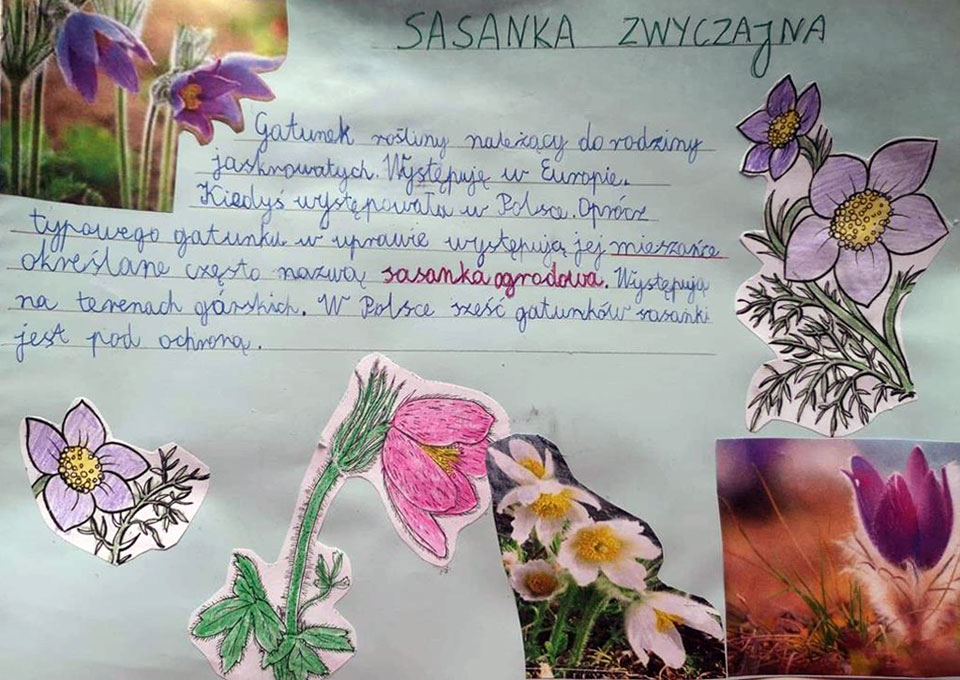 SASANKA ZWYCZAJNA
Gatunek rośliny należący do rodziny
jaskrowatych. Występuję w Europie.
Kiedyś występowała w Polsce. Oprócz
typowego gatunku w uprawie występują jej mieszańce
określane często nazwą sasanka ogrodowa. Występują
na terenach górskich. W Polsce sześć gatunków sasanki
jest pod ochroną.